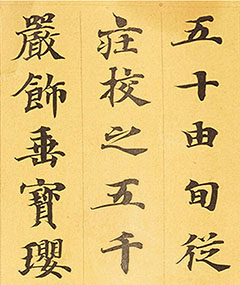 五十由旬從
庄校之五千
嚴飾垂寶瓔